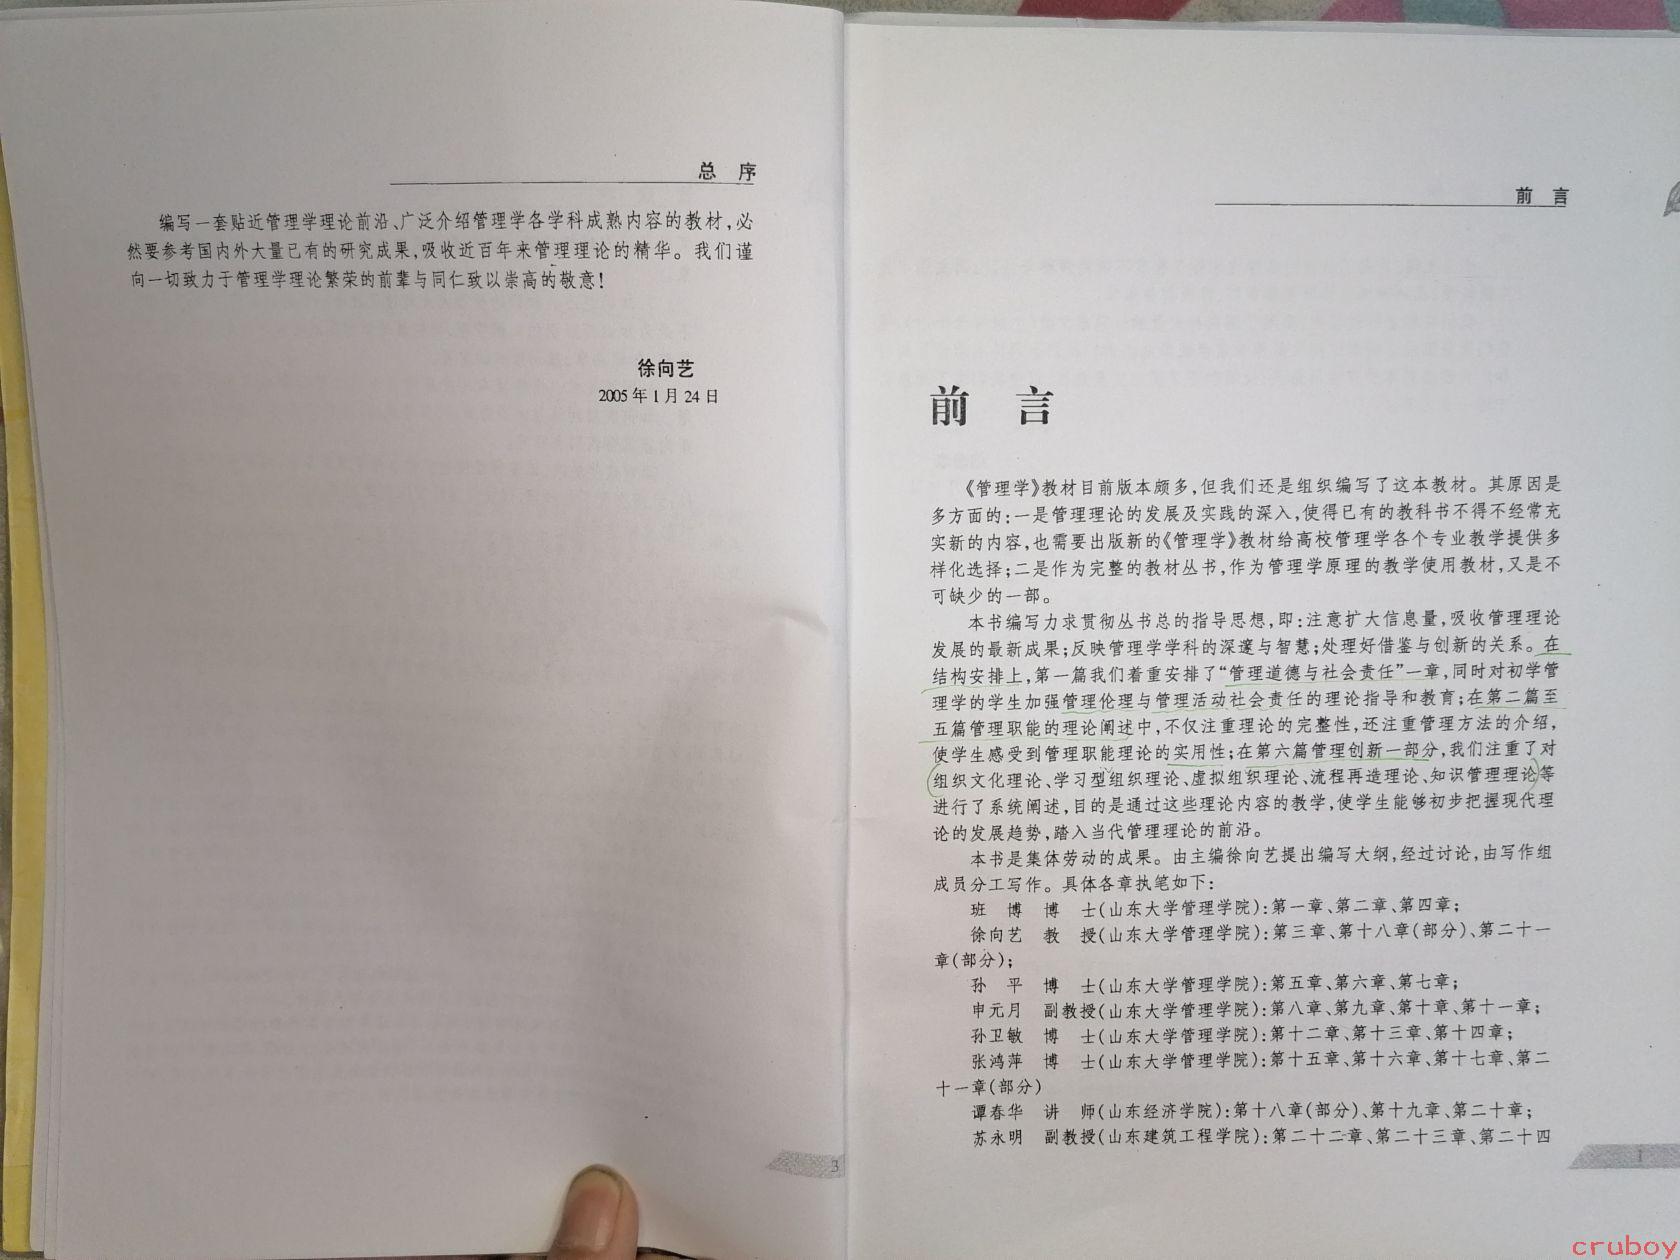 总 序
编写一套贴近管理学理论前沿、广泛介绍管理学各学科成熟内容的教材,必
然要参考国内外大量已有的研究成果,吸收近百年来管理理论的精华。我们谨
向一切致力于管理学理论繁荣的前辈与同仁致以崇高的敬意!
徐向艺
2005年1月24日
3
前 言
前 言
《管理学》教材目前版本颇多,但我们还是组织编写了这本教材。其原因是
多方面的:一是管理理论的发展及实践的深入,使得已有的教科书不得不经常充
实新的内容,也需要出版新的《管理学》教材给高校管理学各个专业教学提供多
样化选择;二是作为完整的教材丛书,作为管理学原理的教学使用教材,又是不
可缺少的一部。
本书编写力求贯彻丛书总的指导思想,即:注意扩大信息量,吸收管理理论
发展的最新成果;反映管理学学科的深邃与智慧;处理好借鉴与创新的关系。在
结构安排上,第一篇我们着重安排了“管理道德与社会责任”一章,同时对初学管
理学的学生加强管理伦理与管理活动社会责任的理论指导和教育;在第二篇至
五篇管理职能的理论阐述中,不仅注重理论的完整性,还注重管理方法的介绍,
使学生感受到管理职能理论的实用性;在第六篇管理创新一部分,我们注重了对
组织文化理论、学习型组织理论、虚拟组织理论、流程再造理论、知识管理理论等
进行了系统阐述,目的是通过这些理论内容的教学,使学生能够初步把握现代理
论的发展趋势,踏入当代管理理论的前沿。
本书是集体劳动的成果。由主编徐向艺提出编写大纲,经过讨论,由写作组
成员分工写作。具体各章执笔如下:
班 博 博 士(山东大学管理学院):第一章、第二章、第四章;
徐向艺 教 授(山东大学管理学院):第三章、第十八章(部分)、第二十一
章(部分);
孙 平 博 士(山东大学管理学院):第五章、第六章、第七章;
申元月 副教授(山东大学管理学院):第八章、第九章、第十章、第十一章;
孙卫敏 博 士(山东大学管理学院):第十二章、第十三章、第十四章;
张鸿萍 博 士(山东大学管理学院):第十五章、第十六章、第十七章、第二
十一章(部分)
谭春华 讲 师(山东经济学院):第十八章(部分)、第十九章、第二十章;
苏永明 副教授(山东建筑工程学院):第二十二章、第二十三章、第二十四
1
cruboy